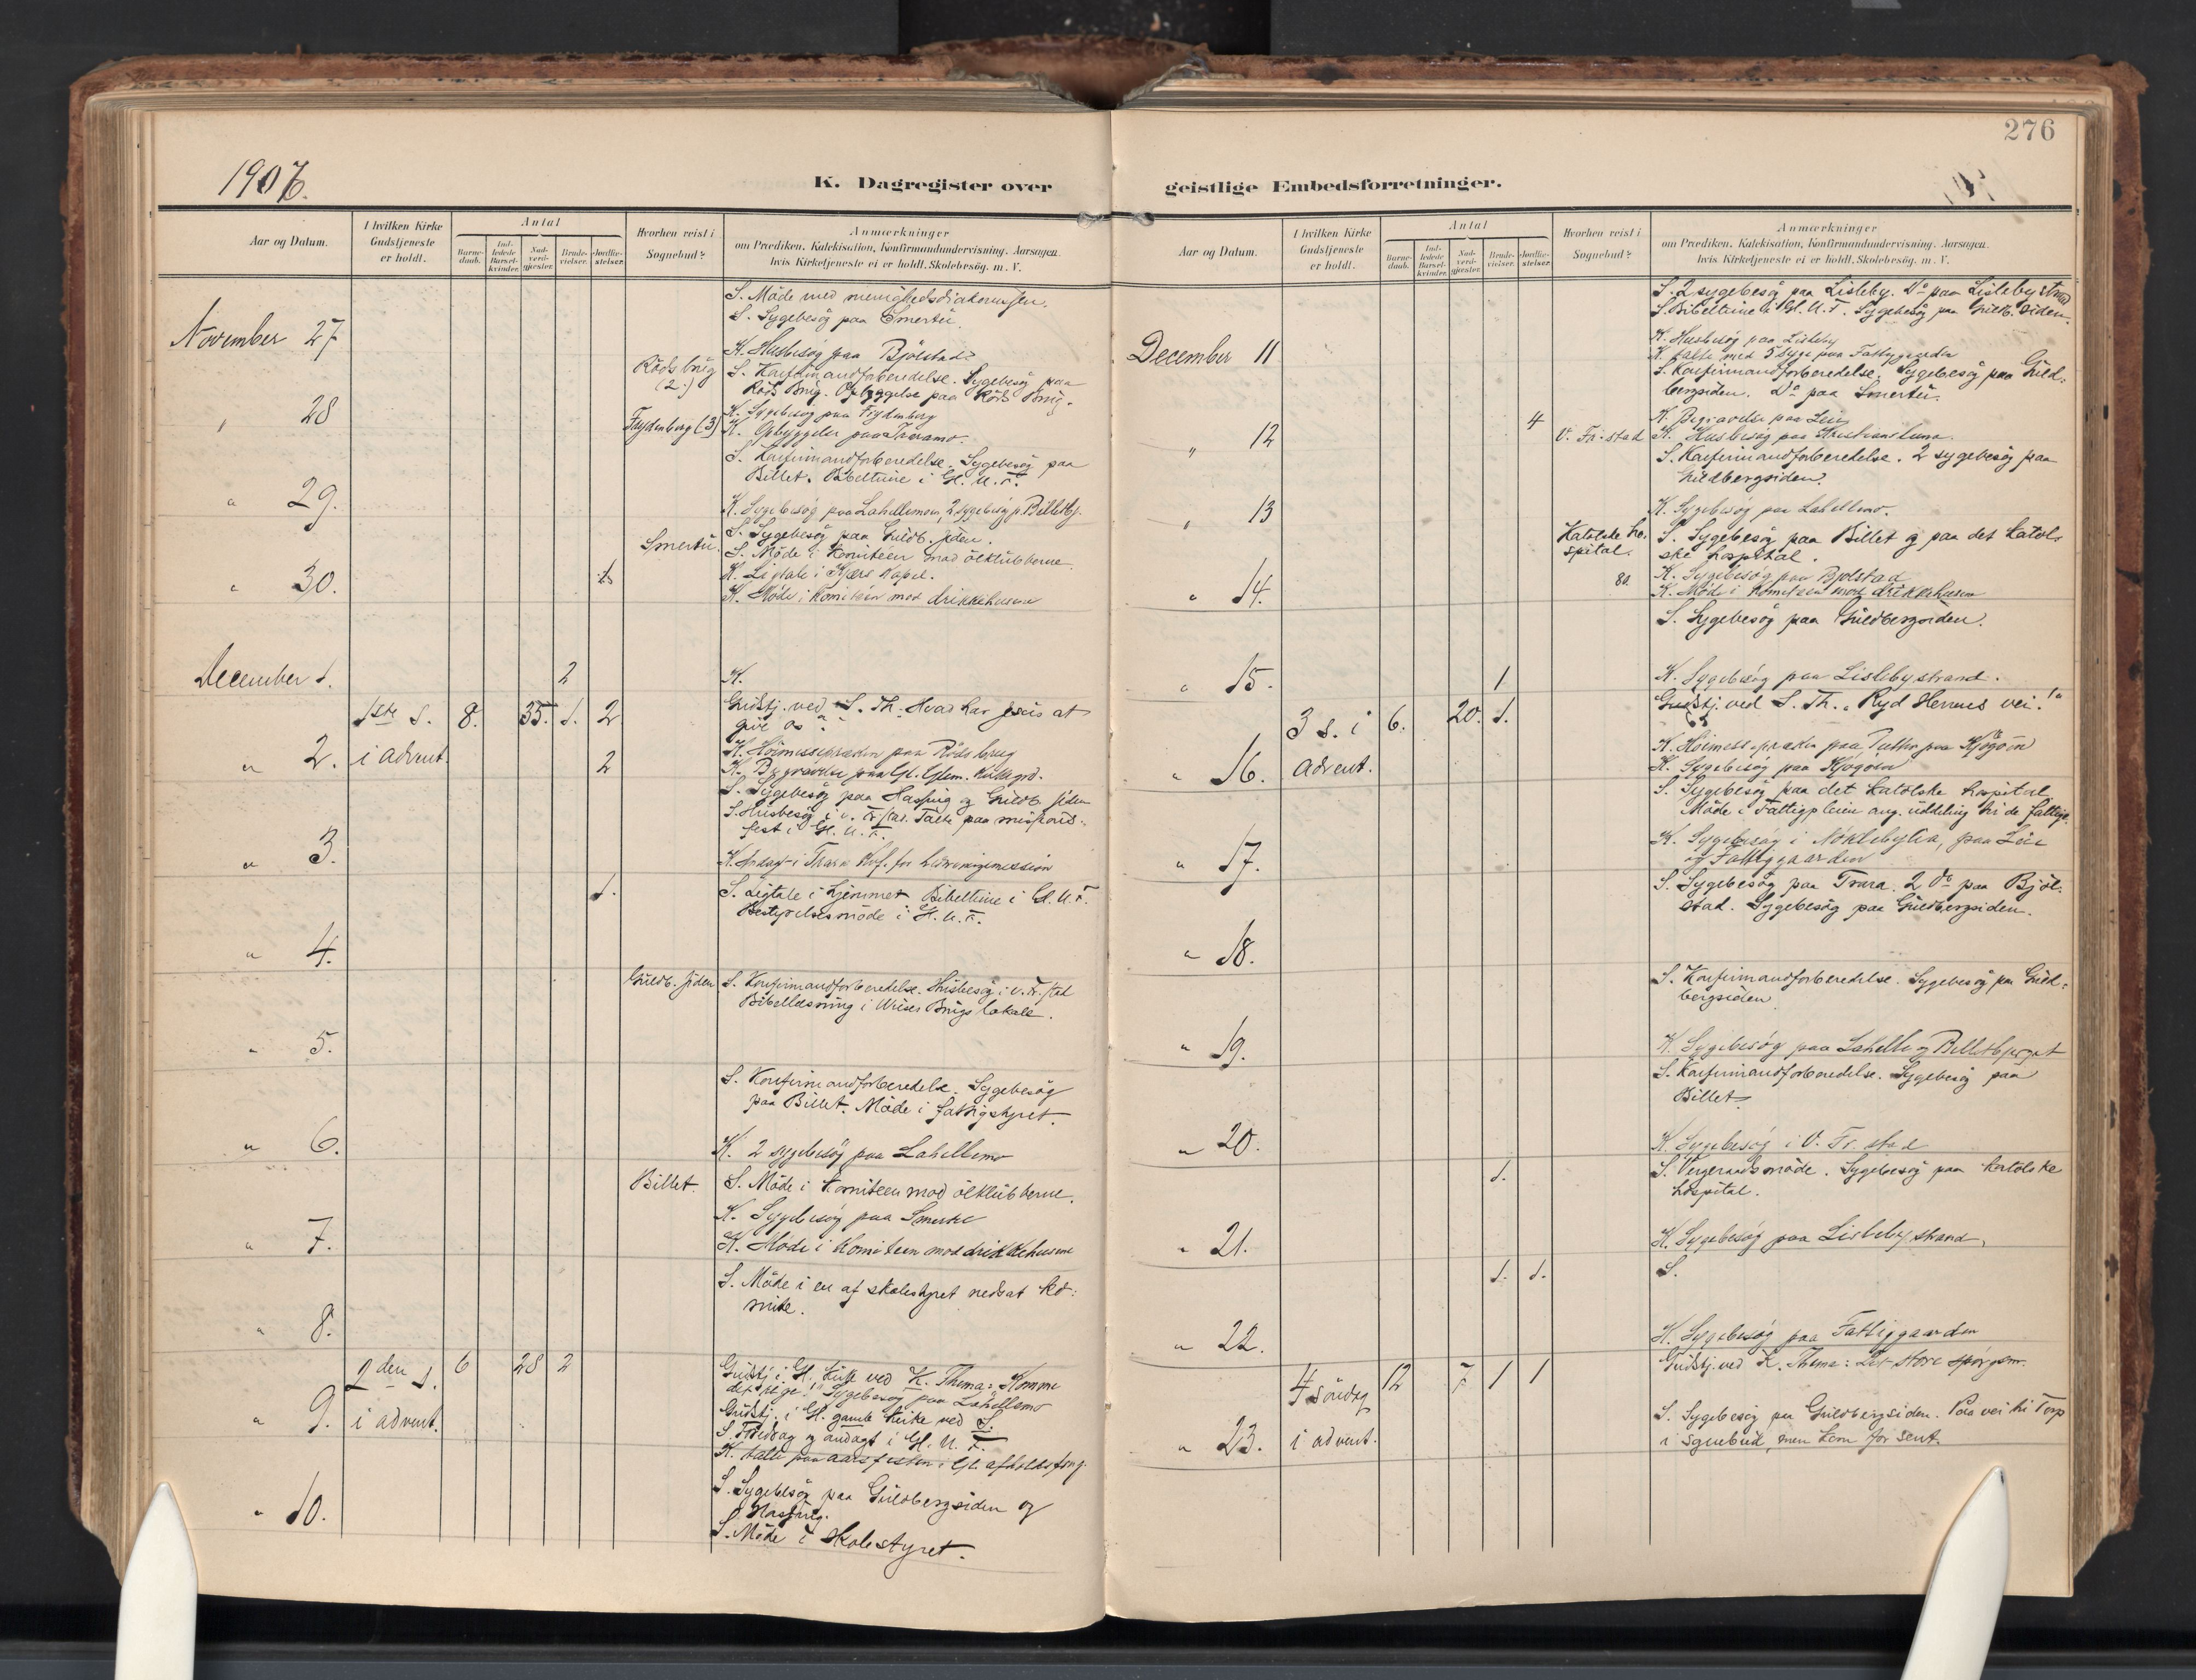 276
1906.
K. Dagregister over
geistlige Embedsforretninger.
Aar og Datum.
I hvilken Kirke
Gudstjeneste
er holdt.
Antal
Barne-
daab.
Ind-
ledede
Barsel-
kvinder.
Nad-
verd-
gjester.
Brude-
vielser.
Jordfæ-
stelser.
Hvorhen reist i
Sognebud?
Anmærkninger
om Prædiken. Katekisation, Konfirmandundervisning. Aarsagen
hvis Kirketjeneste ei er holdt. Skolebesøg. m. V.
S. Möde med menighedsdiakonissen.
S. Sygebesög paa Smertu.
November 27
K. Husbesög paa Bjölstad
Röds brug
(2.)
S. Konfirmandforberedelse. Sygebesög paa
Röds Brug. Opbyggelse paa Röds Brug.
" 28
K. Sygebesög paa Frydenberg
Frydenberg (3)
K. Opbyggelse paa Traramo.
S. Konfirmandforberedelse. Sygebesög paa
Billet. Bibeltime i Gl. U. F.
" 29.
K. Sygebesög paa Lahellemoen, 2 sygebesög p. Billetbj.
S. Sygebesög paa Guldb. siden.
Smertu.
S. Möde i Komiteen mod ölklubberne.
" 30.
1
K. Ligtale i Kjærs Kapel.
K. Möde i Komiteen mod drikkehusene
December 1.
2
K.
1ste s. 8. 35. 1. 2
Gudstj. ved S. Th. "Hvad har Jesus at
give os"
" 2. i advent.
K. Höimesseprædiken paa Röds brug
2
K. Begravelse paa Gl. Glem. Kirkegrd.
S. Sygebesög paa Hassing og Guldb. siden
S. Husbesög i v. Fr.stad. Talte paa missions-
fest i Gl. U. F.
" 3.
1.
S. Ligtale i hjemmet. Bibeltime i Gl. U. F.
Bestyrelsesmöde i Gl. U. F.
" 4.
Guldb. siden
S. Konfirmandforberedelse. Husbesög i v. Fr.stad
Bibellæsning i Wieses Brugs lokale.
" 5.
S. Konfirmandforberedelse. Sygebesög
paa Billet. Möde i fattigstyret.
" 6.
K. 2 sygebesög paa Lahellemo
Billet.
S. Möde i Komiteen mod ölklubberne.
K. Sygebesög paa Smertu
" 7.
K. Möde i Komiteen mod drikkehusene
S. Möde i en af skolestyret nedsat ko-
mite.
" 8.
2den s. 6 28 2
Gudstj. i Gl. kirke ved K. Thema: "Komme
det rige!" Sygebesög paa Lahellemo
" 9. i advent.
Gudstj. i Gl. gamle kirke ved S.
S. Foredrag og andagt i Gl. U. F.
K. talte paa aarsfesten i Gl. afholdsforg.
" 10.
S. Sygebesög paa Guldbergsiden og
Hassing.
S. Möde i Skolestyret.
Aar og Datum.
I hvilken Kirke
Gudstjeneste
er holdt.
Antal
Barne-
daab.
Ind-
ledede
Barsel-
kvinder.
Nad-
verd-
gjester.
Brude-
vielser.
Jordfæ-
stelser.
Hvorhen reist i
Sognebud?
Anmærkninger
om Prædiken. Katekisation, Konfirmandundervisning. Aarsagen.
hvis Kirketjeneste ei er holdt. Skolebesøg. m. V.
S. 2 sygebesög paa Lisleby. Do paa Lislebystrand
S. Bibeltime i Gl. U. F. Sygebesög paa Guldb. siden.
December 11
K. Husbesög paa Lisleby
K. talte med 5 syge paa Fattiggaarden
S. Konfirmandforberedelse. Sygebesög paa Guld-
bergsiden. Do paa Smertu.
4
K. Begravelse paa Leie
" 12
V. Fr.stad
K. Husbesög paa Kristianslund.
S. Konfirmandforberedelse. 2 sygebesög paa
Guldbergsiden.
" 13
K. Sygebesög paa Lahellemo.
Katolske ho-
spital.
S. Sygebesög paa Billet og paa det katol-
ske hospital.
" 14.
K. Sygebesög paa Bjölstad
K. Möde i Komiteen mod drikkehusene
S. Sygebesög paa Guldbergsiden.
" 15.
1
K. Sygebesög paa Lislebystrand.
3 s. i 6. 20. 1.
Gudstj. ved S. Th. "Ryd Herrens vei!"
" 16. advent.
K. Sygebesög paa Kjøgøen
S. Sygebesög paa det katolske hospital
Möde i Fattigpleien ang. uddeling til de fattige.
" 17.
K. Sygebesög i Nøklebylia, paa Leie
og Fattiggaarden
S. Sygebesög paa Trara. 2 do paa Bjöl-
stad. Sygebesög paa Guldbergsiden.
" 18.
S. Konfirmandforberedelse. Sygebesög paa Guld-
bergsiden
" 19.
K. Sygebesög paa Lahelle og Billetbjerget
S. Konfirmandforberedelse. Sygebesög paa
Billet.
" 20.
K. Sygebesög i V. Fr.stad
1.
S. Vergeraadsmöde. Sygebesög paa katolske
hospital.
" 21.
K. Sygebesög paa Lislebystrand.
1. 1.
S.
" 22.
K. Sygebesög paa Fattiggaarden
4 söndag 12 7 1 1
Gudstj. ved K. Thema: Det store spörgsm.
" 23. i advent.
S. Sygebesög paa Guldbergsiden. Paa vei til Torp
i sognebud, men kom for sent.